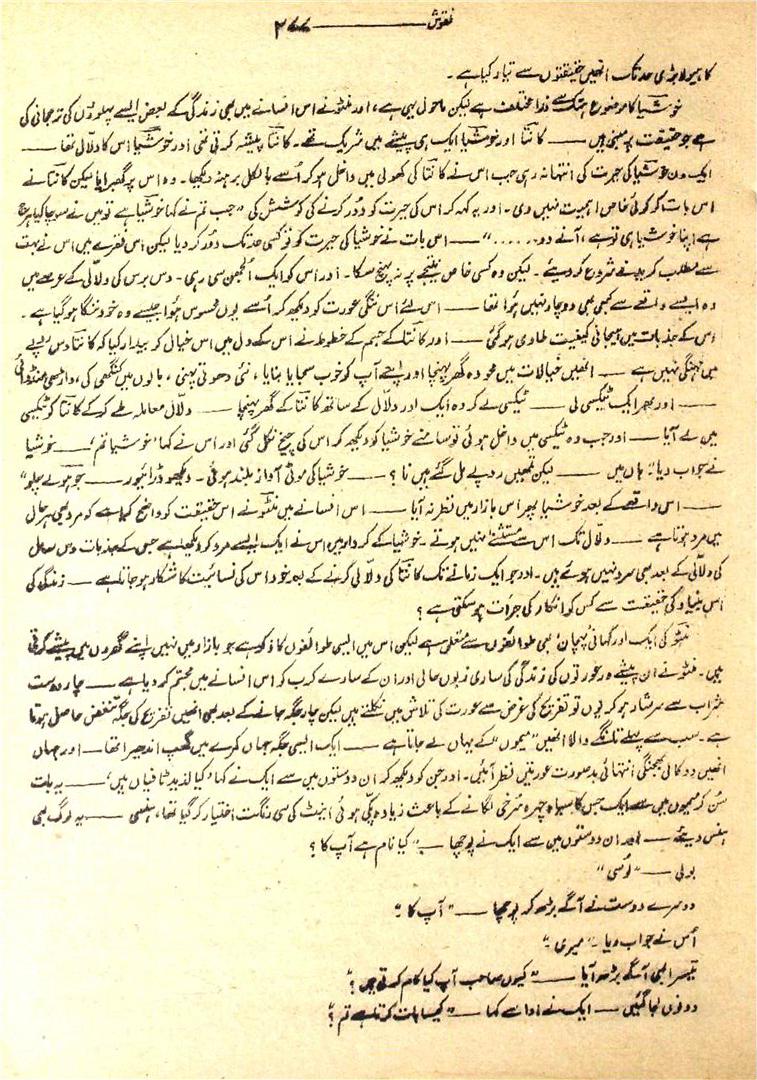 نقوش ــــــــ ۲۷۷
کا ہیولا بڑی حد تک انھیں حقیقتوں سے تیار کیا ہے۔
خوشیا کا موضوع ہتک سے ذرا مختلف ہے لیکن ماحول یہی ہے، اور منٹو نے اس افسانے میں بھی زندگی کے بعض ایسے پہلوؤں کی ترجمانی کی
ہے جو حقیقت پر مبنی ہیں ـــــ کانتا اور خوشیا ایک ہی پیشے میں شریک تھے۔ کانتا پیشہ کرتی تھی اور خوشیا اس کا دلّال تھا ـــــ
ایک دن خوشیا کی حیرت کی انتہا نہ رہی جب اس نے کانتا کی کھولی میں داخل ہو کر اُسے بالکل برہنہ دیکھا۔ وہ اس پر گھبرایا لیکن کانتا نے
اس بات کو کوئی خاص اہمیت نہیں دی۔ اور یہ کہہ کر اس کی حیرت کو دُور کرنے کی کوشش کی "جب تم نے کہا خوشیا ہے تو میں نے سوچا کیا ہرج
ہے اپنا خوشیا ہی تو ہے، آنے دو......" ـــ اس بات نے خوشیا کی حیرت کو تو کسی حد تک دُور کر دیا لیکن اس فقرے میں اس نے بہت
سے مطلب کریدنے شروع کر دیئے۔ لیکن وہ کسی خاص نتیجے پر نہ پہنچ سکا۔ اور اس کو ایک اُلجھن سی رہی۔ دس برس کی دلّالی کے عرصے میں
وہ ایسے واقعے سے کبھی بھی دوچار نہیں ہُوا تھا ـــــ اس لئے اس ننگی عورت کو دیکھ کر اُسے یوں محسوس ہُوا جیسے وہ خود ننگا ہو گیا ہے۔
اس کے جذبات میں ہیجانی کیفیت طاری ہو گئی ـــــ اور کانتا کے جسم کے خطوط نے اس کے دل میں اس خیال کو بیدار کیا کہ کانتا دس روپے
میں مہنگی نہیں ہے ـــــ انھیں خیالات میں محو وہ گھر پہنچا اور اپنے آپ کو خوب سجایا بنایا، نئی دھوتی پہنی، بالوں میں کنگھی کی، داڑھی منڈوائی
ـــــ اور پھر ایک ٹیکسی لی ـــــ ٹیکسی لے کر وہ ایک اور دلال کے ساتھ کانتا کے گھر پہنچا ـــــ دلّال معاملہ طے کر کے کانتا کو ٹیکسی
میں لے آیا ـــــ اور جب وہ ٹیکسی میں داخل ہوئی تو سامنے خوشیا کو دیکھ کر اس کی چیخ نکل گئی اور اس نے کہا 'خوشیا تم'، ـــــ خوشیا
نے جواب دیا "ہاں میں ـــــ لیکن تمھیں روپے مل گئے ہیں نا؟ ـــــ خوشیا کی موٹی آواز بلند ہوئی۔ دیکھو ڈرائیور ـــــ جوہو لے چلو"
ـــــ اس واقعے کے بعد خوشیا پھر اس بازار میں نظر نہ آیا ـــــ اس افسانے میں منٹو نے اس حقیقت کو واضح کیا ہے کہ مرد بھی ہر حال
میں مرد ہوتا ہے ـــــ دلّال تک اس سے مستثنےٰ نہیں ہوتے۔ خوشیا کے کردار میں اس نے ایک ایسے مرد کو دیکھا ہے جس کے جذبات دس سال
کی دلّالی کے بعد بھی سرد نہیں ہوئے ہیں۔ اور جو ایک زمانے تک کانتا کی دلّالی کرنے کے بعد خود اس کی نسائیت کا شکار ہو جاتا ہے ـــــ زندگی کی
اس بنیادی حقیقت سے کس کو انکار کی جرأت ہو سکتی ہے؟
منٹو کی ایک اور کہانی 'پہچان' بھی طوائفوں سے متعلق ہے لیکن اس میں ایسی طوائفوں کا ذکر ہے جو بازار میں نہیں اپنے گھروں میں پیشے کرتی
ہیں۔ منٹو نے ان پیشے ور عورتوں کی زندگی کی ساری زبوں حالی اور ان کے سارے کرب کو اس افسانے میں مجتمع کر دیا ہے ـــــ چار دوست
شراب سے سرشار ہو کر یوں تو تفریح کی غرض سے عورت کی تلاش میں نکلتے ہیں لیکن چار جگہ جانے کے بعد بھی انھیں تفریح کی جگہ تنغض حاصل ہوتا
ہے۔ سب سے پہلے تانگے والا انھیں "میموں" کے یہاں لے جاتا ہے ـــــ ایک ایسی جگہ جہاں کمرے میں گھپ اندھیرا تھا ـــ اور جہاں
انھیں دو کالی بھجنگی انتہائی بدصورت عورتیں نظر آئیں۔ اور جن کو دیکھ کر ان دوستوں میں سے ایک نے کہا 'کیا لذیذ ٹافیاں ہیں' ـــ یہ بات
سُن کر میموں میں سے ایک جس کا سیاہ چہرہ سُرخی لگانے کے باعث زیادہ پکّی ہوئی اینٹ کی سی رنگت اختیار کر گیا تھا، ہنسی ـــــ یہ لوگ بھی
ہنس دیئے ـــــ اور ان دوستوں میں سے ایک نے پوچھا ـــ "کیا نام ہے آپ کا؟
بولی ـــ "لُوسی"
دوسرے دوست نے آگے بڑھ کر پوچھا ـــــ "آپ کا۔"
اُس نے جواب دیا۔ "میری۔"
تیسرا بھی آگے بڑھ آیا ـــــ "کیوں صاحب آپ کیا کام کرتی ہیں؟"
دونوں لجا گئیں ـــــ ایک نے ادا سے کہا ـــــ "کیسا بات کرتا ہے تم؟"